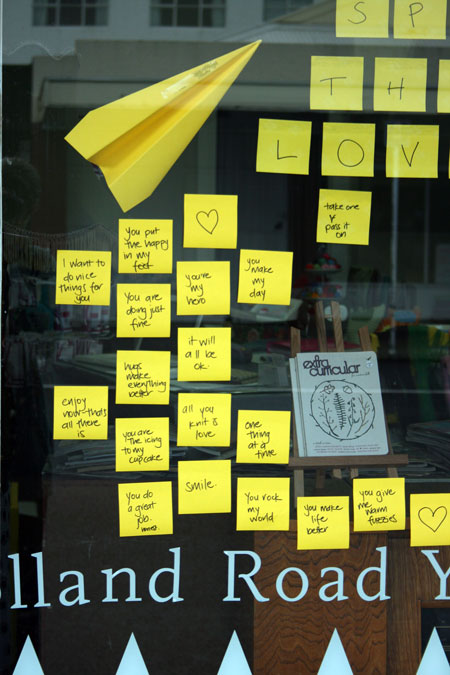 S P
T H
L O V
take one
&
pass it
on
You put
the happy
in my
feet
I want to
do nice
things for
you
you're
my
hero
you
make my
day
You are
doing just
fine
it will
all be
ok
hugs
make
everything
better
extra
curricular
enjoy
now-thats
all there
is
all you
knit is
love
one
thing
at a
time
you are
The icing
to my
cupcake
Smile.
You do
a great
job.
You rock
my
world
you make
life
better
you give
me
warm
fuzzies
olland Road Y